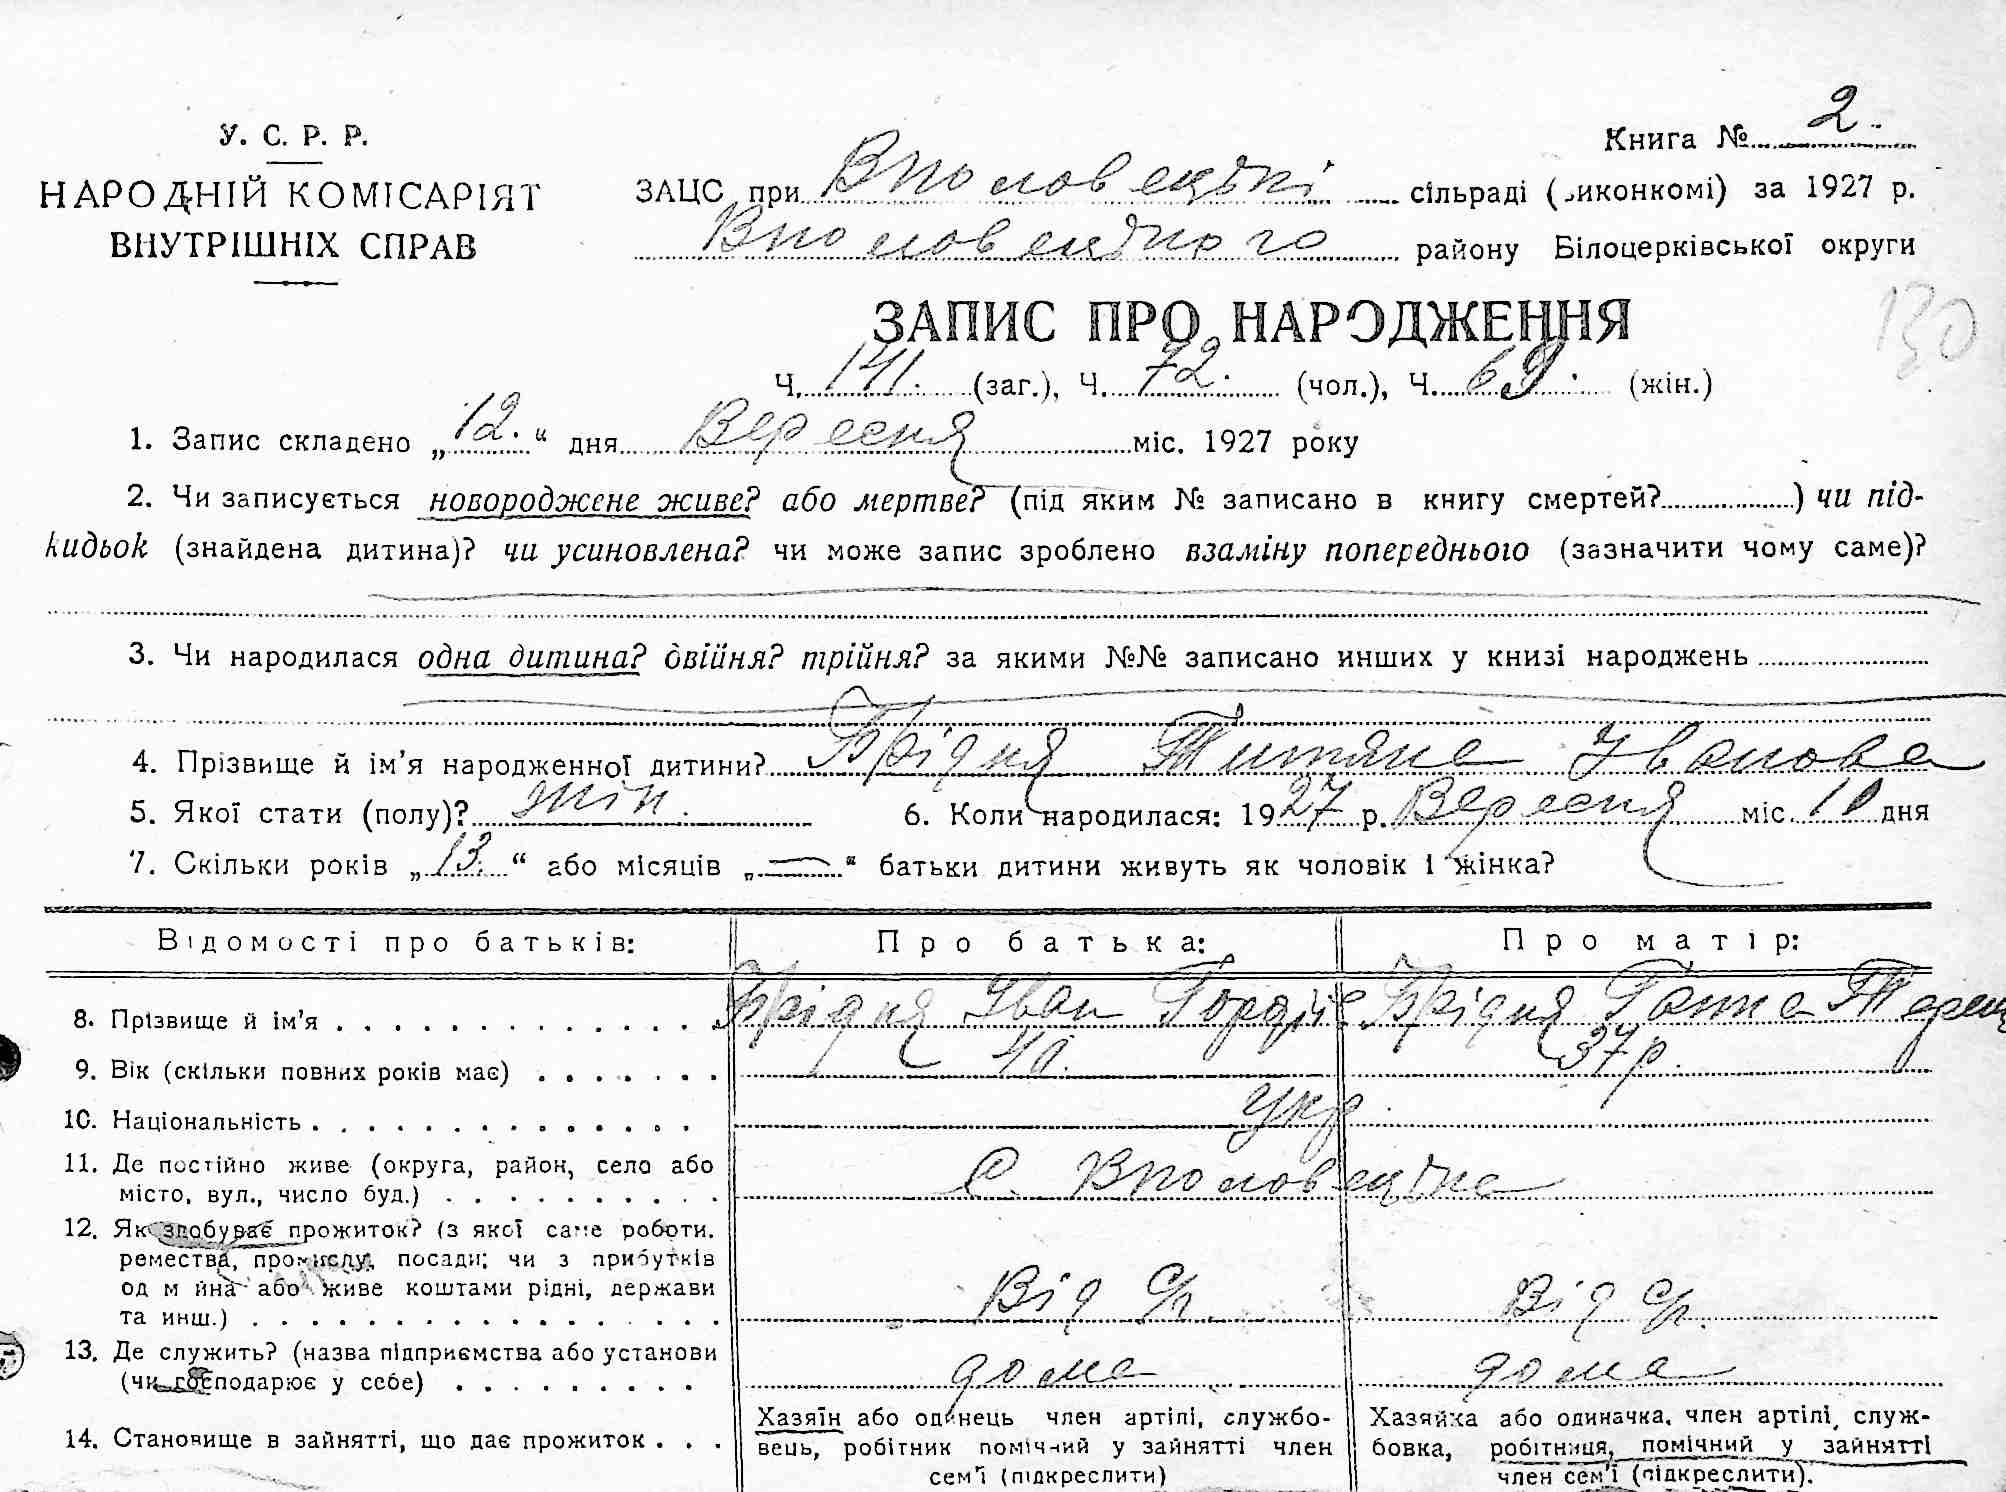 Книга № 2.
У. С. Р. Р.
НАРОДНІЙ КОМІСАРІЯТ
ВНУТРІШНІХ СПРАВ
ЗАЦС при Вполовецькі сільраді (виконкомі) за 1927 р.
Вполовецького району Білоцерківської округи
130
ЗАПИС ПРО НАРОДЖЕННЯ
Ч. 141. (заг.), Ч. 72. (чол.), Ч. 69. (жін.)
1. Запис складено „12.“ дня Вересня міс. 1927 року
2. Чи записується новороджене живе? або мертве? (під яким № записано в книгу смертей?) чи під-
кидьок (знайдена дитина)? чи усиновлена? чи може запис зроблено взаміну попереднього (зазначити чому саме)?
3. Чи народилася одна дитина? двійня? трійня? за якими №№ записано инших у книзі народжень
4. Прізвище й ім’я народженної дитини? Брідня Титяна Іванова
5. Якої стати (полу)? жін. 6. Коли народилася: 1927 р. Вересня міс. 10 дня
7. Скільки років „13.“ або місяців „—“ батьки дитини живуть як чоловік і жінка?
Відомості про батьків: Про батька: Про матір:
8. Прізвище й ім’я . . . Брідня Іван Гордіє Брідня Ганна Терен
9. Вік (скільки повних років має) . . . 40. 37 р.
10. Національність . . . Укр.
11. Де постійно живе (округа, район, село або
місто, вул., число буд.) . . . С. Вполовецьке
12. Як здобуває прожиток? (з якої саме роботи.
ремества, промислу, посади; чи з прибутків
од майна або живе коштами рідні, держави
та инш.) . . . Від с/г. Від с/г.
13. Де служить? (назва підприємства або установи
(чи господарює у себе) . . . дома дома
14. Становище в зайнятті, що дає прожиток . . .
Хазяїн або одинець член артілі, службо-
вець, робітник помічний у зайнятті член
сем’ї (підкреслити)
Хазяйка або одиначка, член артілі, служ-
бовка, робітниця, помічний у зайнятті
член сем’ї (підкреслити).